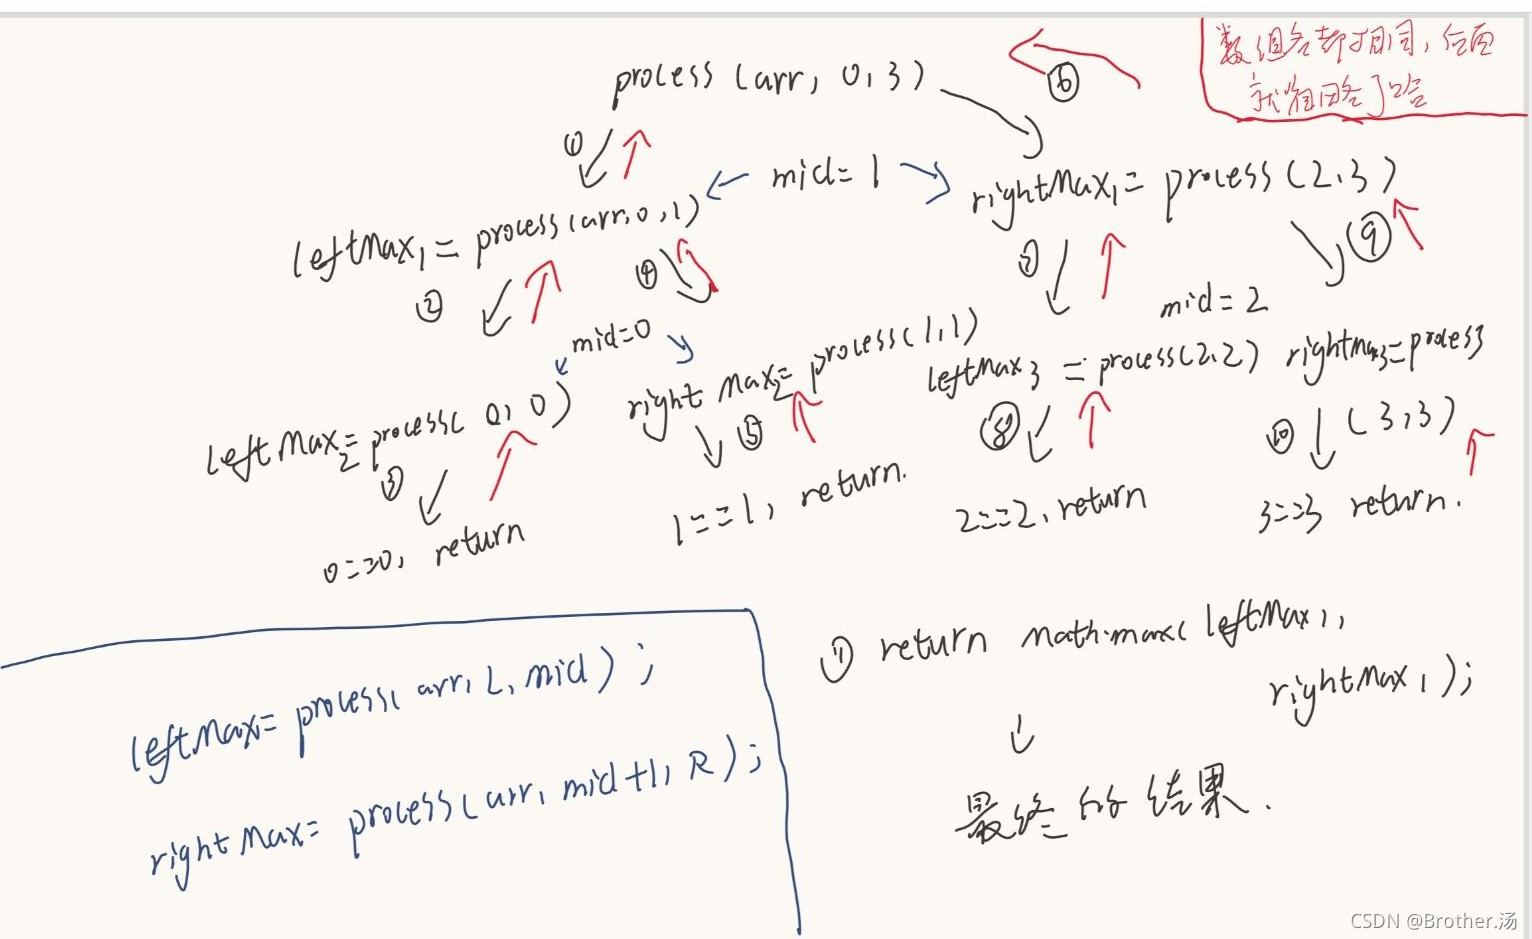 数组名都相同，后面
就省略了哈
process (arr, 0, 3)
⑥
①
mid=1
rightMax₁= process (2,3)
leftMax₁= process (arr,0,1)
②
④
⑦
⑨
mid=0
mid=2
rightMax₂=process(1,1)
leftMax₃ = process(2,2)
rightmax₃=process
(3,3)
leftMax₂=process( 0, 0)
③
⑤
⑧
⑩
0==0, return
1==1, return.
2==2, return
3==3 return.
leftMax= process( arr, L, mid ) ;
rightMax= process(arr, mid+1, R ) ;
return math.max( leftMax₁,
rightMax₁ );
最终的结果.
CSDN @Brother.汤